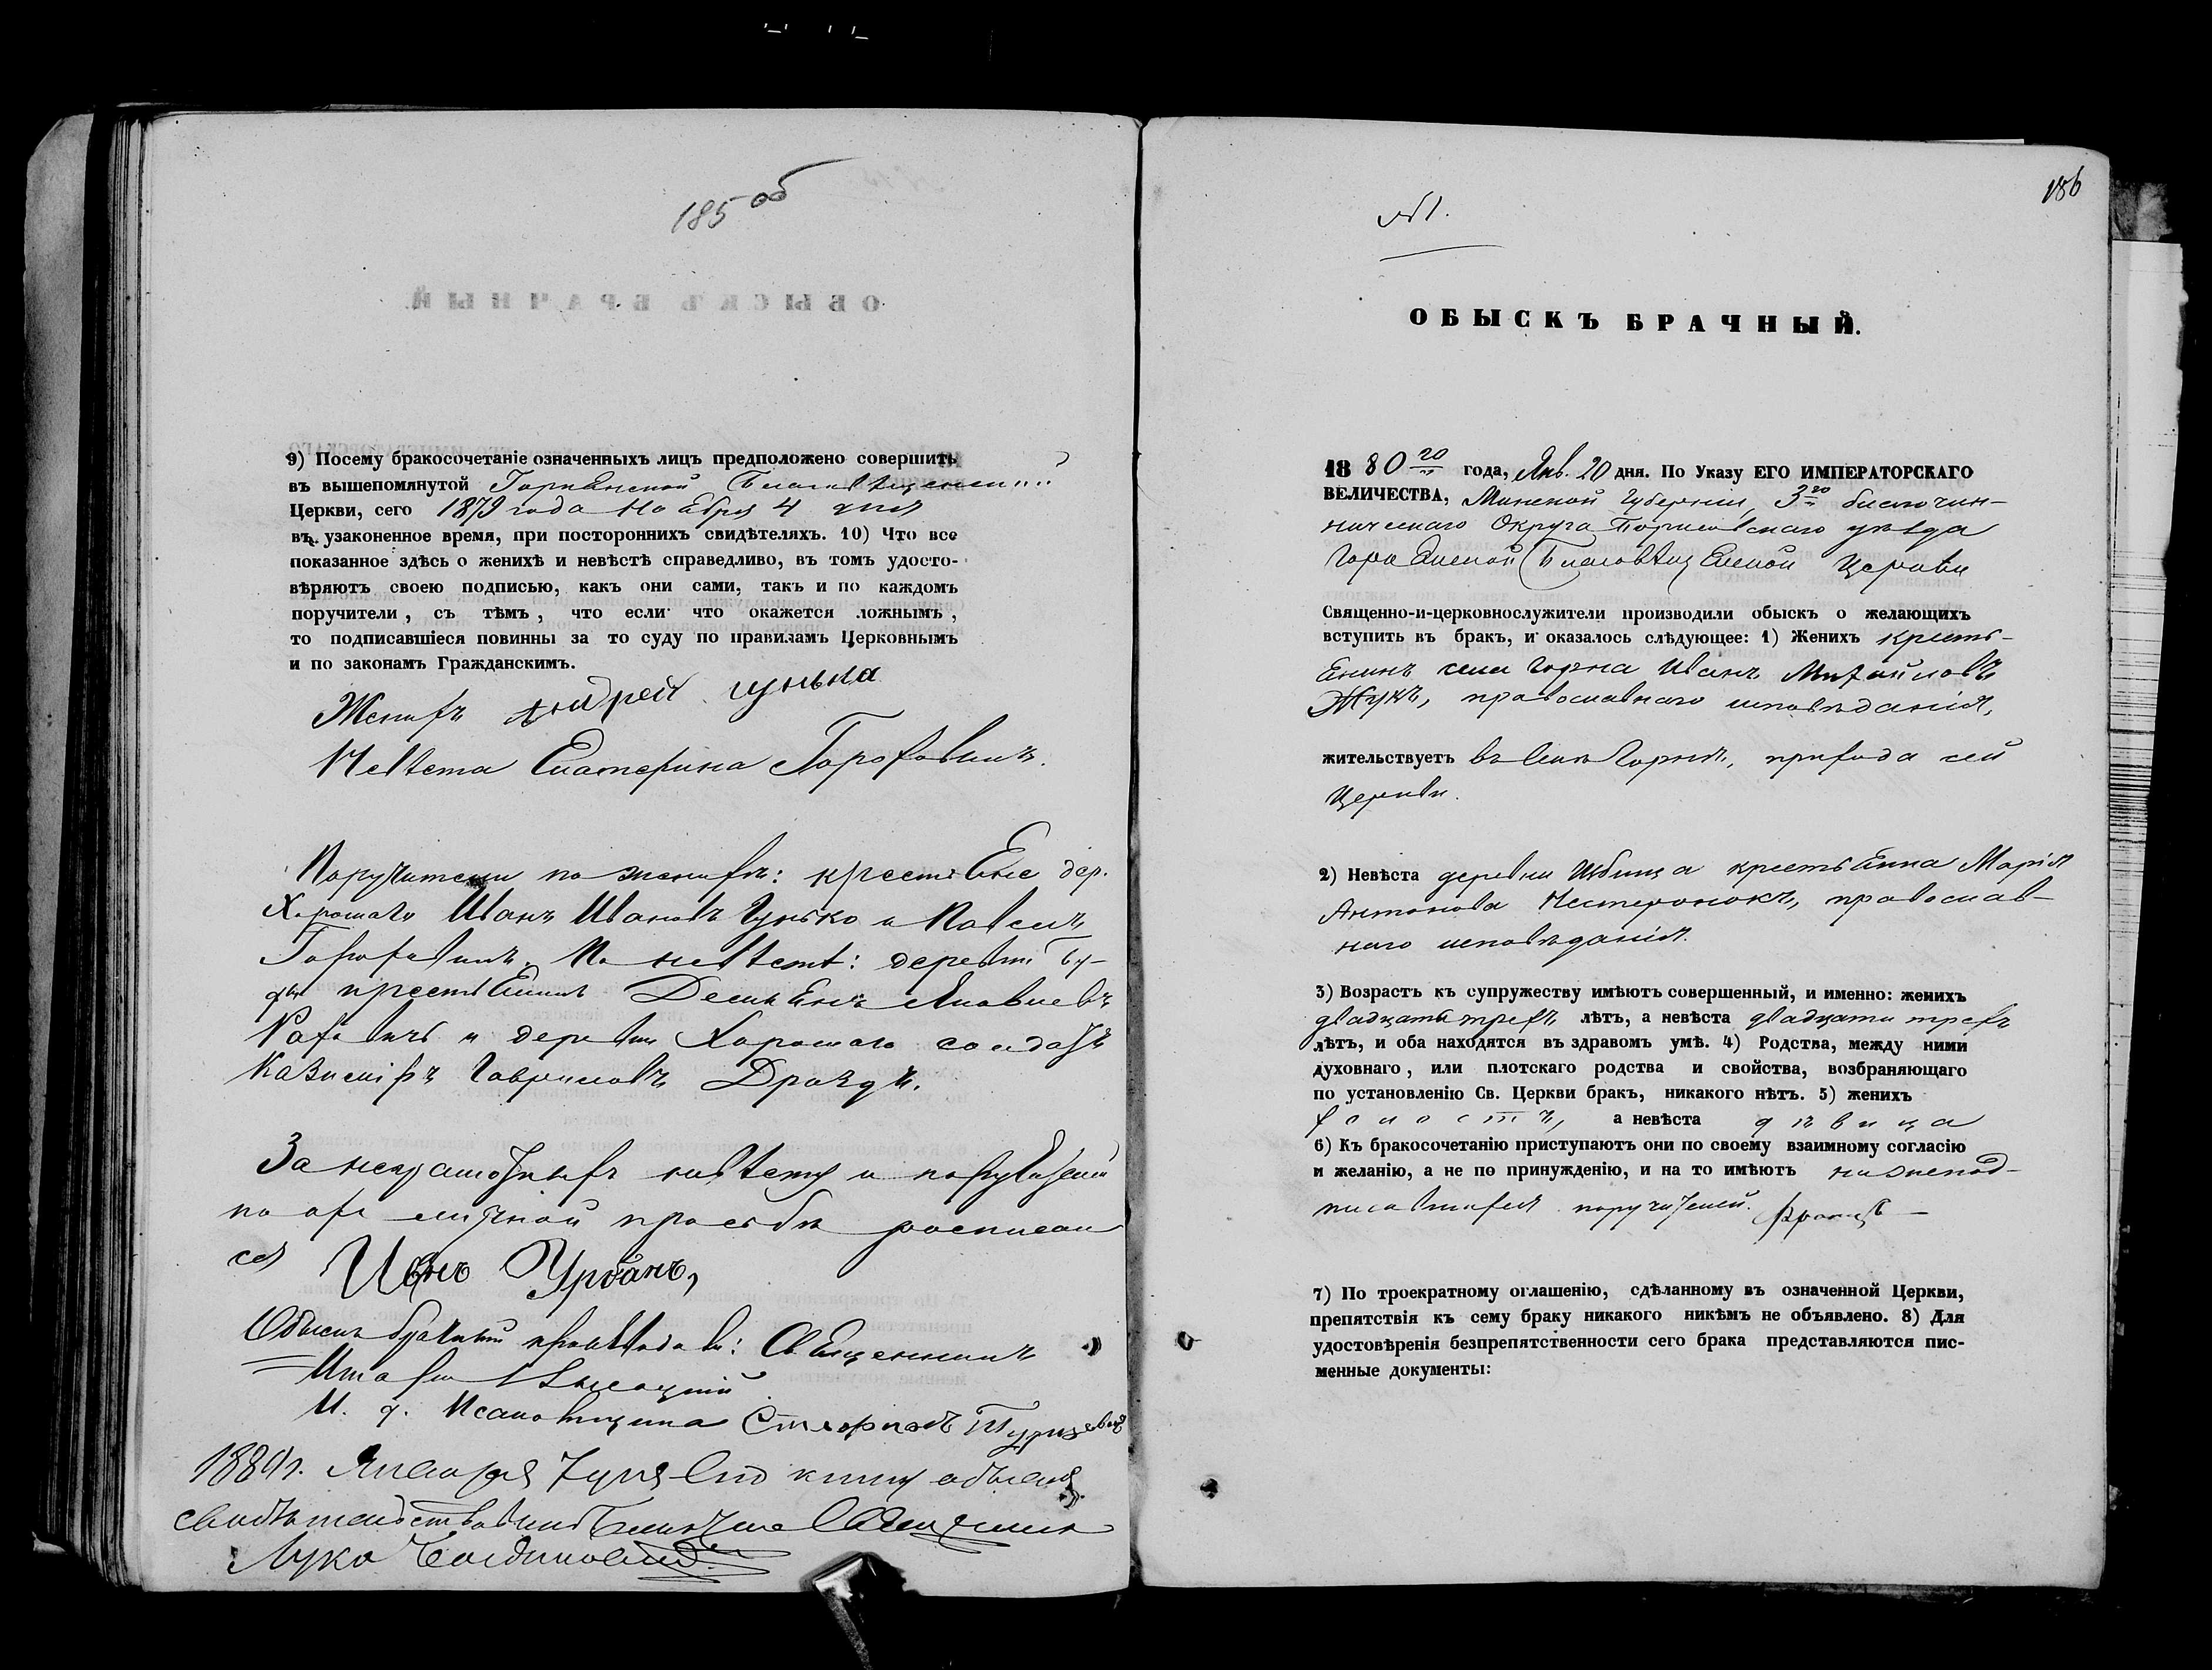 185 об
9) Посему бракосочетаніе означенныхъ лицъ предположено совершить
въ вышепомянутой Горнѣнской Благовѣщенской
Церкви, сего 1879 года Ноября 4 дня
въ узаконенное время, при постороннихъ свидѣтеляхъ. 10) Что все
показанное здѣсь о женихѣ и невѣстѣ справедливо, въ томъ удосто-
вѣряютъ своею подписью, какъ они сами, такъ и по каждомъ
поручители, съ тѣмъ, что если что окажется ложнымъ,
то подписавшіеся повинны за то суду по правиламъ Церковнымъ
и по законамъ Гражданскимъ.
Женихъ Андрей гунька
Невѣста Екатерина
Поручители по женихѣ: крестьяне дер.
Хорошаго Иванъ Ивановъ Гунько и
По невѣстѣ: деревни Бу-
крестьянинъ
и деревни Хорошаго солдатъ
Казиміръ Гавриловъ Дроздъ.
За неграмотныхъ невѣсту и поручителей
по ихъ личной просьбѣ росписал
ся Иванъ Урбанъ,
Обыскъ брачный производили: Священникъ
И. д. Псаломщика
1880 г. Января 7 дня сію книгу обысковъ
свидѣтельствовалъ Благочинный Священникъ
Лука
186
№ 1.
ОБЫСКЪ БРАЧНЫЙ.
1880го года, Янв. 20 дня. По Указу ЕГО ИМПЕРАТОРСКАГО
ВЕЛИЧЕСТВА, Минской Губерніи, 3го благочин-
ническаго Округа Борисовскаго уѣзда
Горнѣнской Благовѣщенской Церкви
Священно-и-церковнослужители производили обыскъ о желающихъ
вступить въ бракъ, и оказалось слѣдующее: 1) Женихъ кресть-
янинъ села Горна Иванъ Михайловъ
Жукъ, православнаго исповѣданія,
жительствуетъ въ селѣ Горнѣ, прихода сей
Церкви.
2) Невѣста деревни крестьянка Марія
Антонова Нестеронокъ, православ-
наго исповѣданія.
3) Возрастъ къ супружеству имѣютъ совершенный, и именно: женихъ
двадцати трехъ лѣтъ, а невѣста двадцати трехъ
лѣтъ, и оба находятся въ здравомъ умѣ. 4) Родства, между ними
духовнаго, или плотскаго родства и свойства, возбраняющаго
по установленію Св. Церкви бракъ, никакого нѣтъ. 5) женихъ
холостъ, а невѣста дѣвица
6) Къ бракосочетанію приступаютъ они по своему взаимному согласію
и желанію, а не по принужденію, и на то имѣютъ нижепод-
писавшихся поручителей.
7) По троекратному оглашенію, сдѣланному въ означенной Церкви,
препятствія къ сему браку никакого никѣмъ не объявлено. 8) Для
удостовѣренія безпрепятственности сего брака представляются пис-
менные документы: